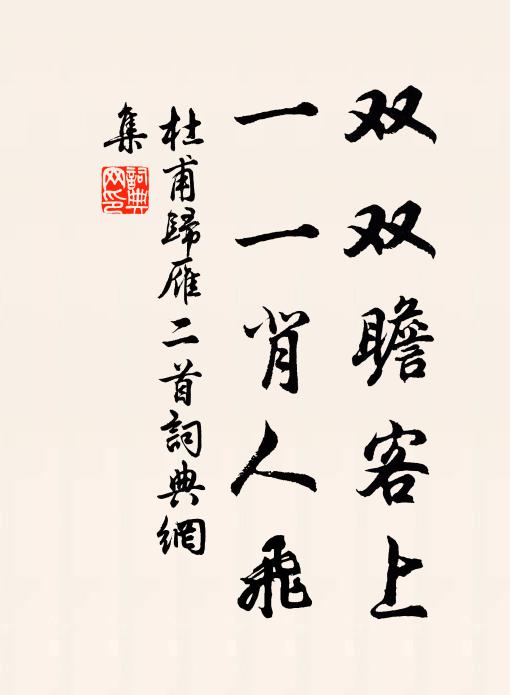 双双瞻客上
一一背人飛
杜甫歸雁二首詞典網
集
詞典
网印